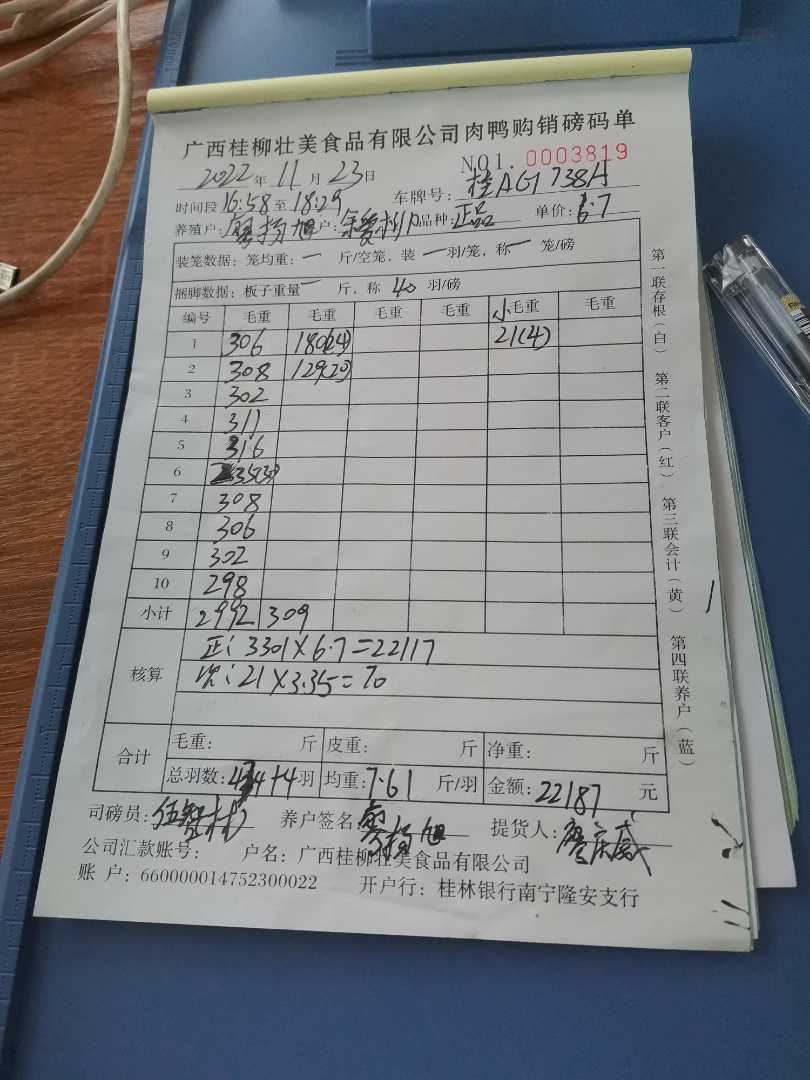 广西桂柳壮美食品有限公司肉鸭购销磅码单
2022年11月23日 NO1. 0003819
时间段16:58至18:29 车牌号:桂AG1738挂
养殖户:廖扬旭 户: 品种:正品 单价:6.7
装笼数据:笼均重:一斤/空笼,装一羽/笼,称一笼/磅
捆脚数据:板子重量一斤,称40羽/磅
编号 毛重 毛重 毛重 毛重 小毛重 毛重
1 306 180(24) 21(4)
2 308 129(20)
3 302
4 311
5 316
6 235(30)
7 308
8 306
9 302
10 298
小计 2992 309
核算 正:3301×6.7=22117
次:21×3.35=70
合计 毛重: 斤 皮重: 斤 净重: 斤
总羽数:434+4羽 均重:7.61斤/羽 金额:22187元
司磅员: 养户签名:廖扬旭 提货人:
公司汇款账号: 户名:广西桂柳壮美食品有限公司
账 户:660000014752300022 开户行:桂林银行南宁隆安支行
第一联存根(白) 第二联客户(红) 第三联会计(黄) 第四联养户(蓝)